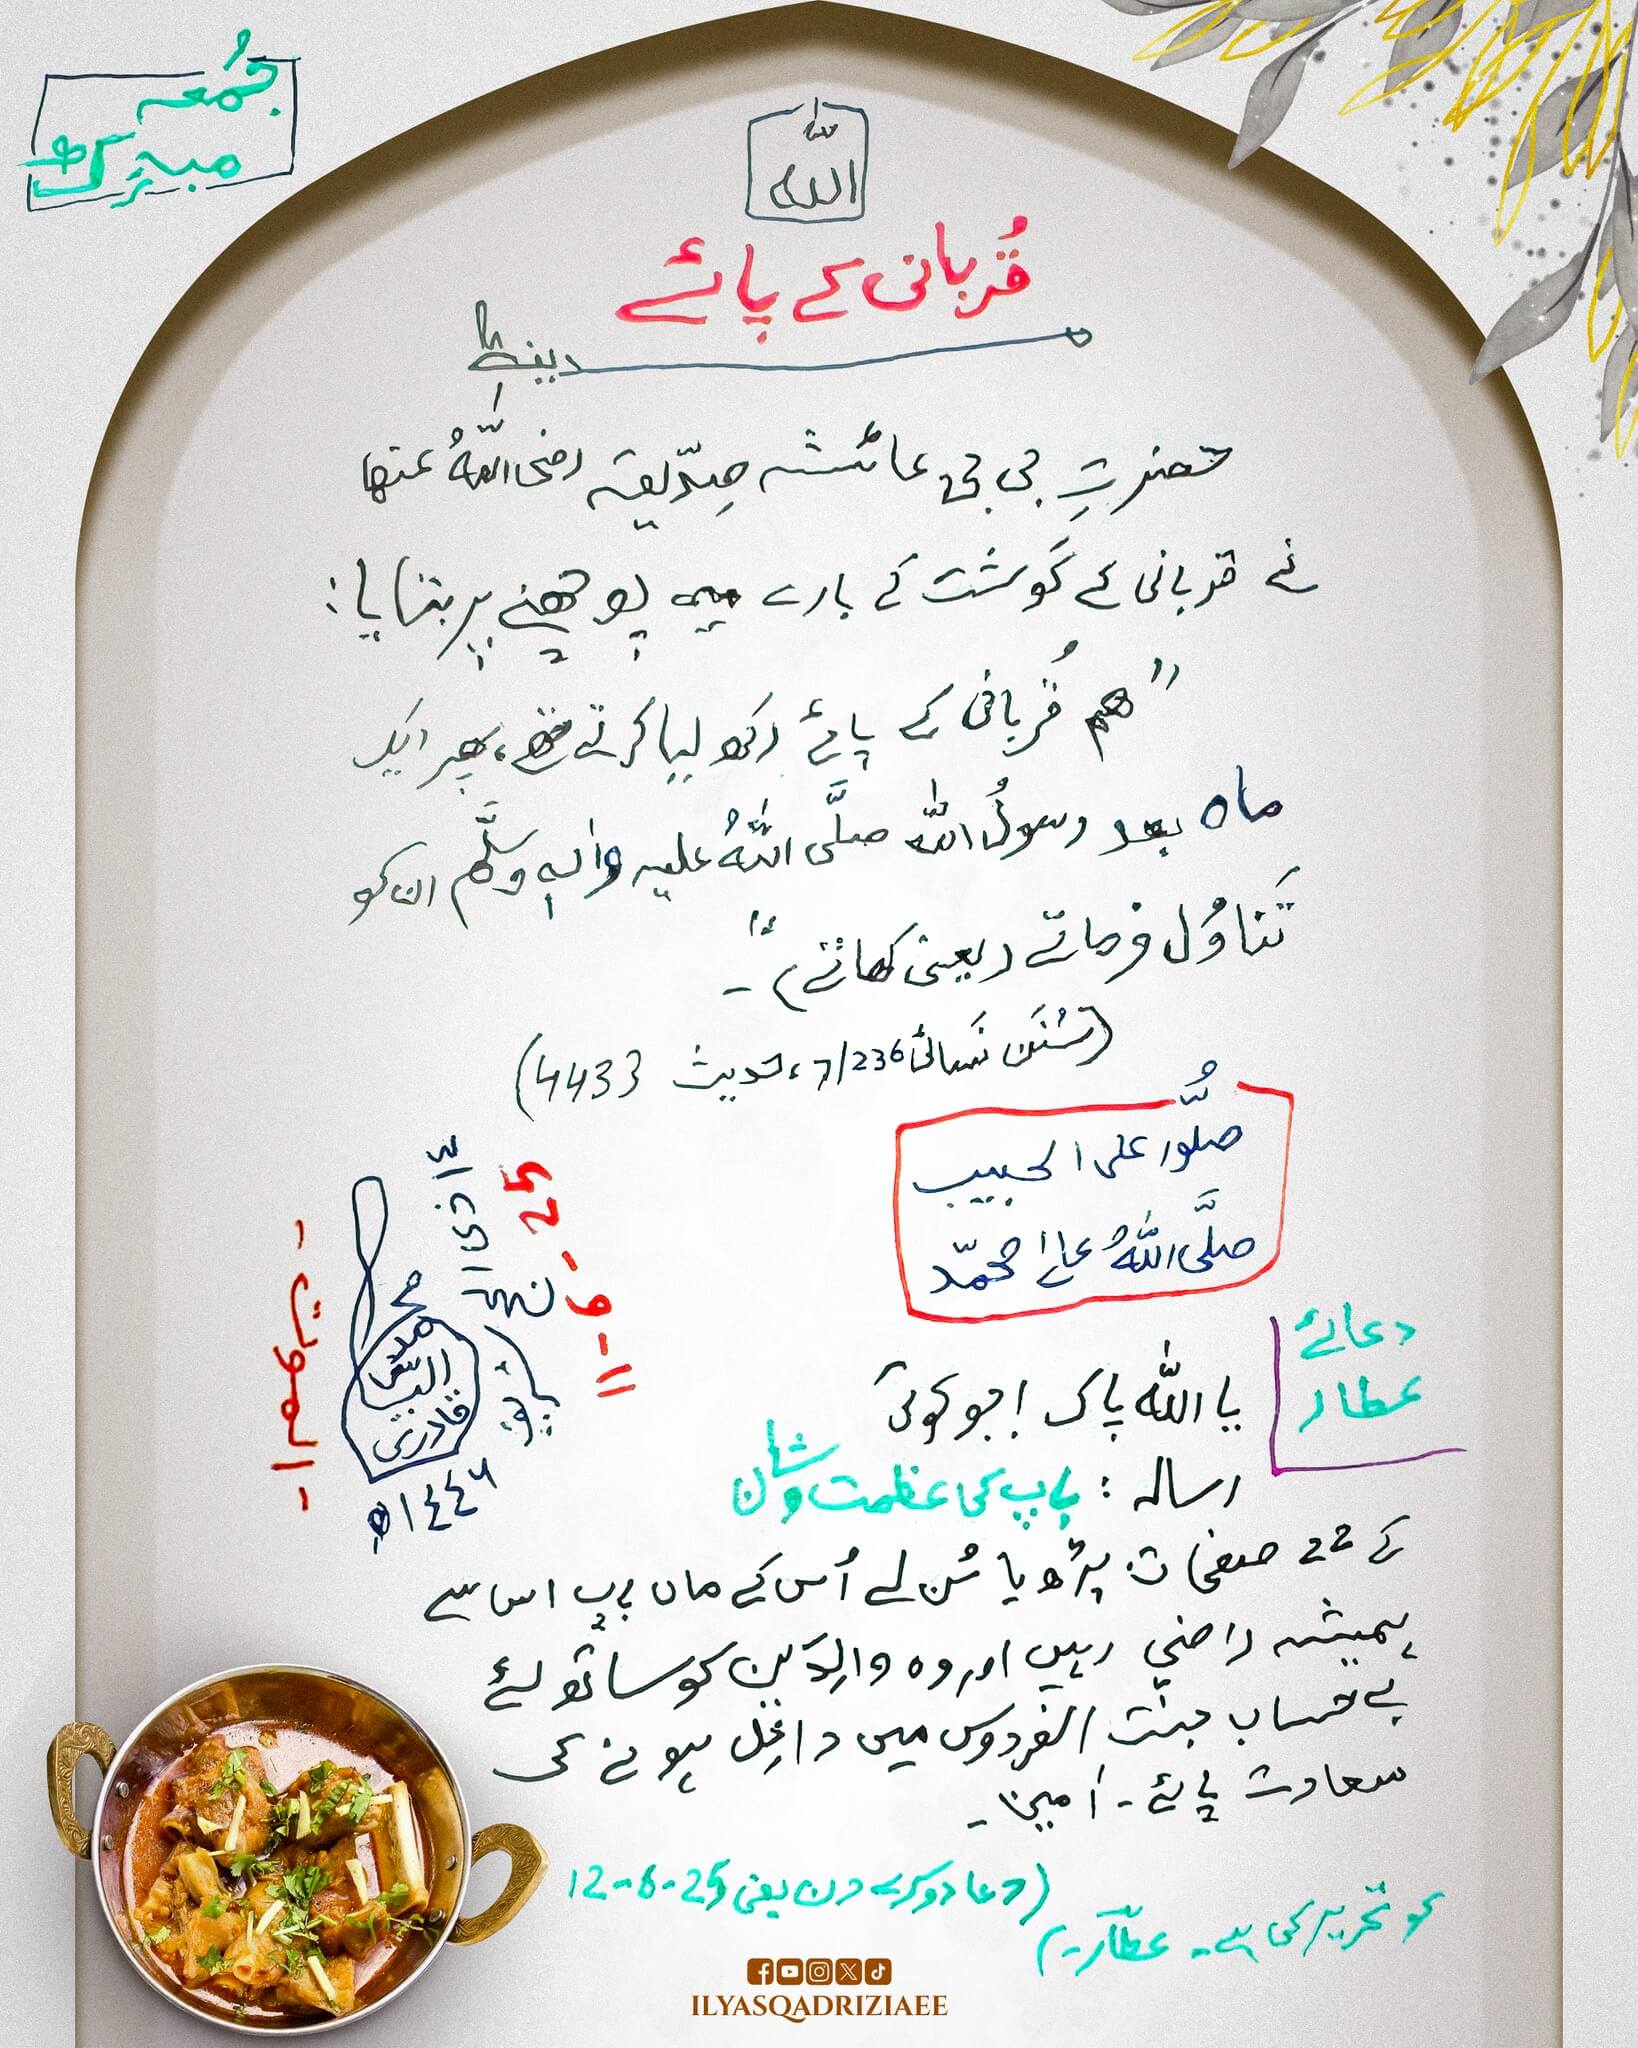 جُمُعہ
مبارک
اللہ
قُربانی کے پائے
مدینہ
حضرتِ بی بی عائشہ صِدّیقہ رضی اللہُ عنہا
نے قربانی کے گوشت کے بارے میں پوچھنے پر بتایا:
"ہم قُربانی کے پائے رکھ لیا کرتے تھے، پھر ایک
ماہ بعد رسولُ اللہ صلَّی اللہُ علیہ واٰلہٖ وسلَّم ان کو
تَناوُل فرماتے (یعنی کھاتے)"۔
(سُنَن نَسائی 7/236، حدیث 4433)
صلُّوا علی الحبیب
صلَّی اللہُ علٰی محمّد
دعائے
عطار
یا اللہ پاک! جو کوئی
رسالہ: باپ کی عظمت و شان
کے 22 صفحات پڑھ یا سُن لے اُس کے ماں باپ اس سے
ہمیشہ راضی رہیں اور وہ والِدَین کو ساتھ لئے
بے حساب جنّت الفردوس میں داخِل ہونے کی
سعادت پائے۔ اٰمین۔
(دعا دوکرے دن یعنی 25-6-12
کو تحریر کی ہے۔ عطّار۔)
محمد
الیاس
قادری
١٤٤٦ھ
11-6-25
- الموت -
ILYASQADRIZIAEE